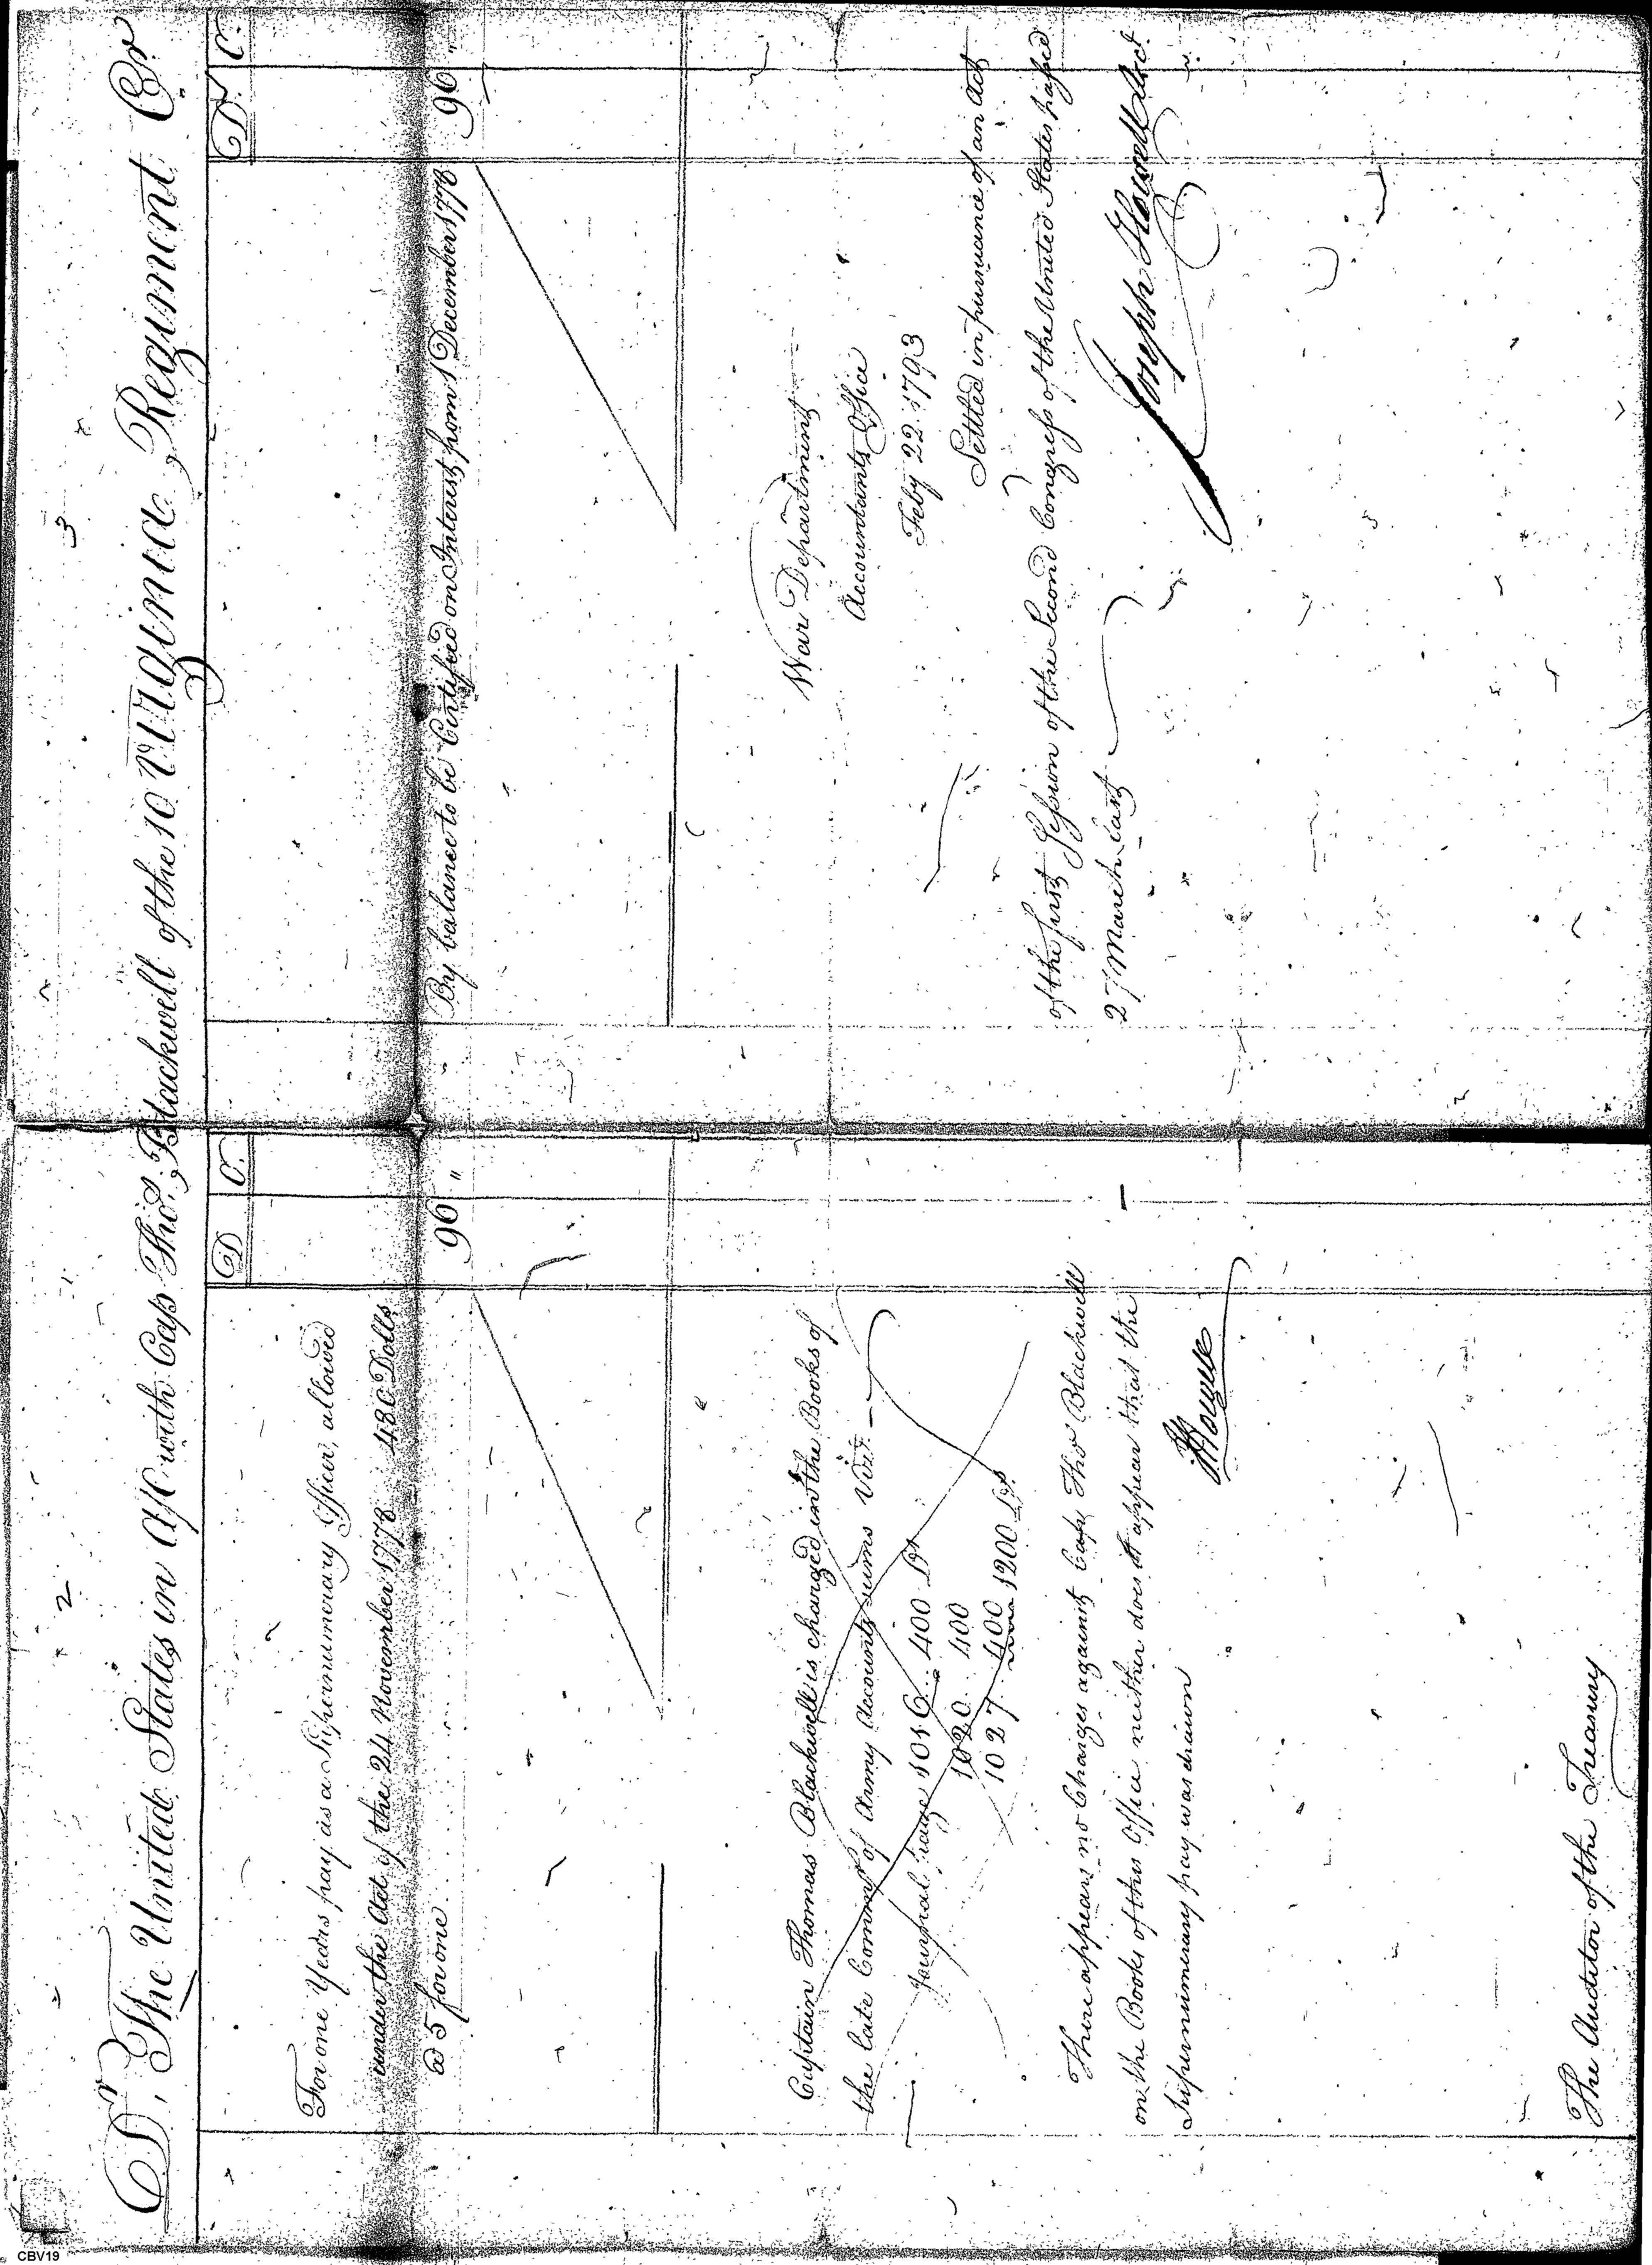 2
3
Dr. The United States in A/C with Cap Thos. Blackwell of the 10 Virginia Regiment Cr
D C.
For one Years pay as a Supernumerary Officer, allowed
under the Act of the 24 November 1778 480 Dolls
@ 5 for one 96 "
Captain Thomas Blackwell is charged in the Books of
the late Commr of Army Accounts sums Viz.
Journal page 1016 400 Drs
1020 400
1027 400 1200 Drs
There appears no Charges against Cap Thos Blackwell
on the Books of this Office neither does it appear that the
Supernumerary pay was drawn
JHowell
The Auditor of the Treasury
D. C.
By balance to be Certified on Interest from 1 December 1778 96 "
War Department
Accountants Office
Feby 22 1793
Settled in pursuance of an Act
of the first Session of the Second Congress of the United States passed
27 March last
Joseph Howell Acct.
CBV19